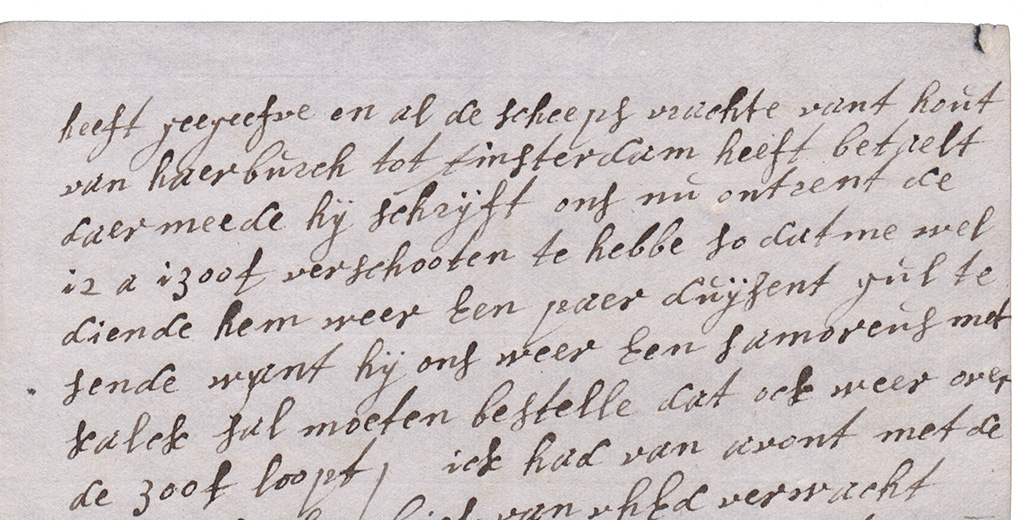 heeft geegeefve en al de scheeps vrachte vant hout
van haerburch tot Amsterdam heeft betaelt
daermeede hij schrijft ons nu ontrent de
12 a 1300f verschooten te hebbe so datme wel
diende hem weer Een paer duijsent gul te
sende want hij ons weer Een samoreus met
kalck sal moeten bestelle dat ock weer over
de 300f loopt / ick had van avont met de
van rhEd verwacht